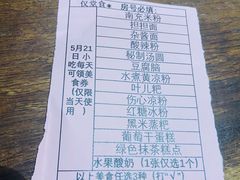 仅堂食* 房号必填：
5月21日小吃每天可领美食券（仅限当天使用）
南充米粉
担担面
杂酱面
酸辣粉
秘制汤圆
豆腐脑
水煮黄凉粉
叶儿粑
伤心凉粉
红糖冰粉
黑米蒸粑
葡萄干蛋糕
绿色抹茶糕点
水果酸奶（1张仅选1个）
以上美食任选3种（打"√"）